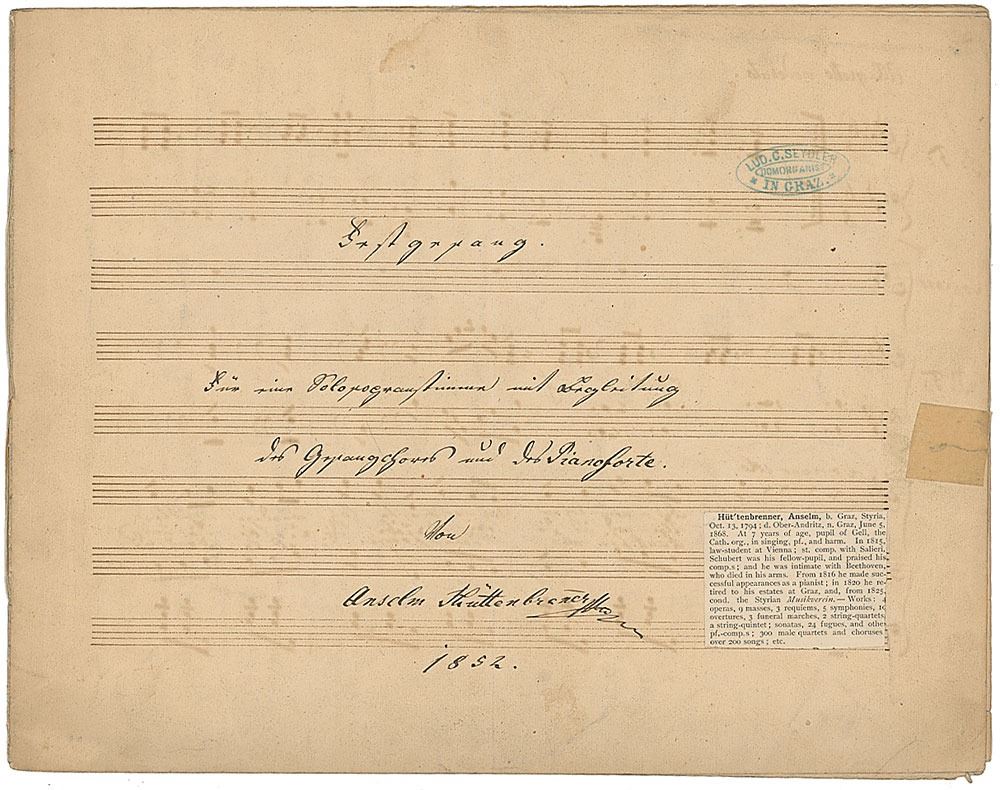 LUD. C. SEYDLER
DOMORGANIST
* IN GRAZ. *
Festgesang.
Für eine Solosopranstimme mit Begleitung
des Gesangchores und des Pianoforte.
Von
Anselm Hüttenbrenner
1852.
Hüt'tenbrenner, Anselm, b. Graz, Styria,
Oct. 13, 1794; d. Ober-Andritz, n. Graz, June 5,
1868. At 7 years of age, pupil of Gell, the
Cath. org., in singing, pf., and harm. In 1815,
law-student at Vienna; st. comp. with Salieri.
Schubert was his fellow-pupil, and praised his
comp.s; and he was intimate with Beethoven,
who died in his arms. From 1816 he made suc-
cessful appearances as a pianist; in 1820 he re-
tired to his estates at Graz, and, from 1825,
cond. the Styrian Musikverein.—Works: 4
operas, 9 masses, 3 requiems, 5 symphonies, 10
overtures, 3 funeral marches, 2 string-quartets,
a string-quintet; sonatas, 24 fugues, and other
pf.-comp.s; 300 male quartets and choruses,
over 200 songs; etc.